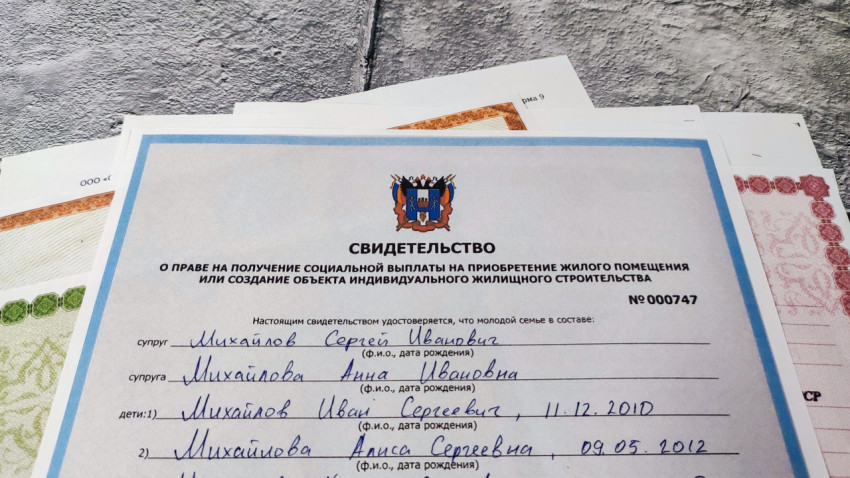 рма 9
ООО «
СВИДЕТЕЛЬСТВО
О ПРАВЕ НА ПОЛУЧЕНИЕ СОЦИАЛЬНОЙ ВЫПЛАТЫ НА ПРИОБРЕТЕНИЕ ЖИЛОГО ПОМЕЩЕНИЯ
ИЛИ СОЗДАНИЕ ОБЪЕКТА ИНДИВИДУАЛЬНОГО ЖИЛИЩНОГО СТРОИТЕЛЬСТВА
№ 000747
Настоящим свидетельством удостоверяется, что молодой семье в составе:
супруг Михайлов Сергей Иванович
(ф.и.о., дата рождения)
супруга Михайлова Анна Ивановна
(ф.и.о., дата рождения)
СР
дети:1) Михайлов Иван Сергеевич, 11.12.2010
(ф.и.о., дата рождения)
2) Михайлова Алиса Сергеевна, 09.05.2012
(ф.и.о., дата рождения)